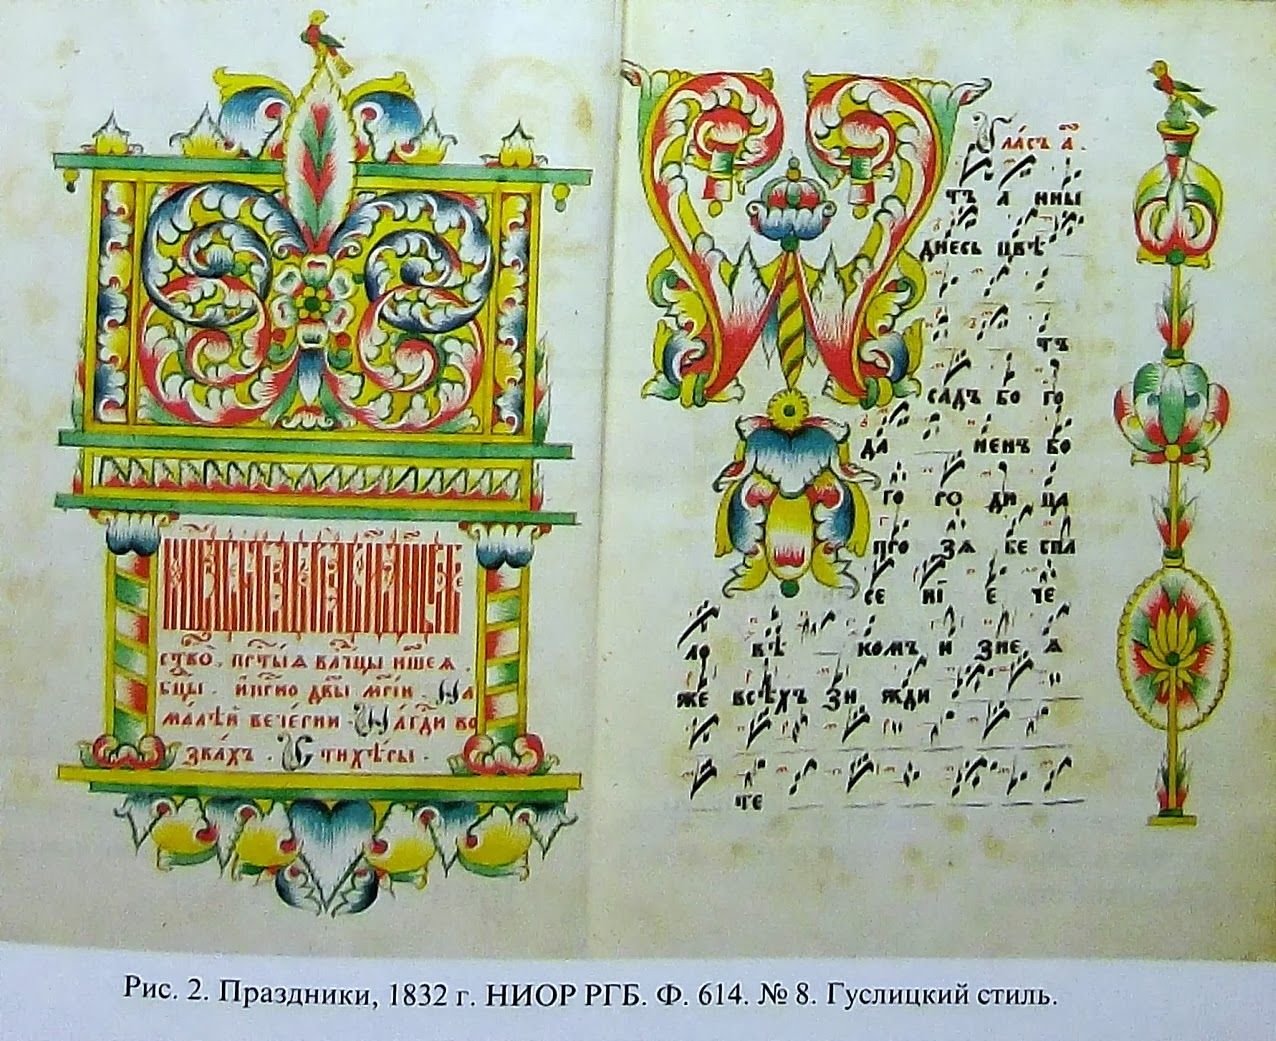 ст҃во. прⷭ҇тыѧ влⷣцы нш҃еѧ .
бцы . дв҃ы мр҃іи . На
малѣй вечерни . На гдⷭ҇и во
звахъ . Стихѣры .
Гласъ а҃ .
тъ а нны
днесь цвѣ
тъ
садъ бо го
да ненъ бо
го ро ди ца
про зѧ бе спа
се нї е че
ло вѣ комъ и зне, ѧ
же всѣхъ зи жди
че
Рис. 2. Праздники, 1832 г. НИОР РГБ. Ф. 614. № 8. Гуслицкий стиль.